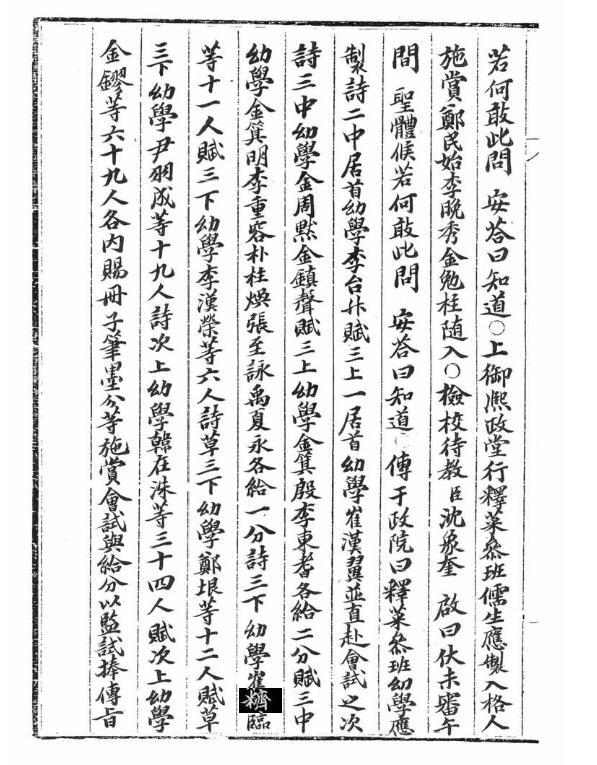 若何敢此問 安答曰知道○上御熙政堂行釋菜叅班儒生應製入格人
施賞鄭民始李晩秀金勉柱随入○檢校待教臣沈象奎 啟曰伏未審午
間 聖體候若何敢此問 安答曰知道○傳于政院曰釋菜叅班幼學應
製詩二中居首幼學李台升賦三上一居首幼學崔漢翼並直赴會試之次
詩三中幼學金周黙金鎮聲賦三上幼學金箕殷李東耆各給二分賦三中
幼學金箕明李重容朴柱煥張至詠禹夏永各給一分詩三下幼學崔 臨
等十一人賦三下幼學李漢榮等六人詩草三下幼學鄭垠等十二人賦草
三下幼學尹 成等十九人詩次上幼學韓在洙等三十四人賦次上幼學
金鏐等六十九人各內賜冊子筆墨分等施賞會試與給分以監試捧傳旨